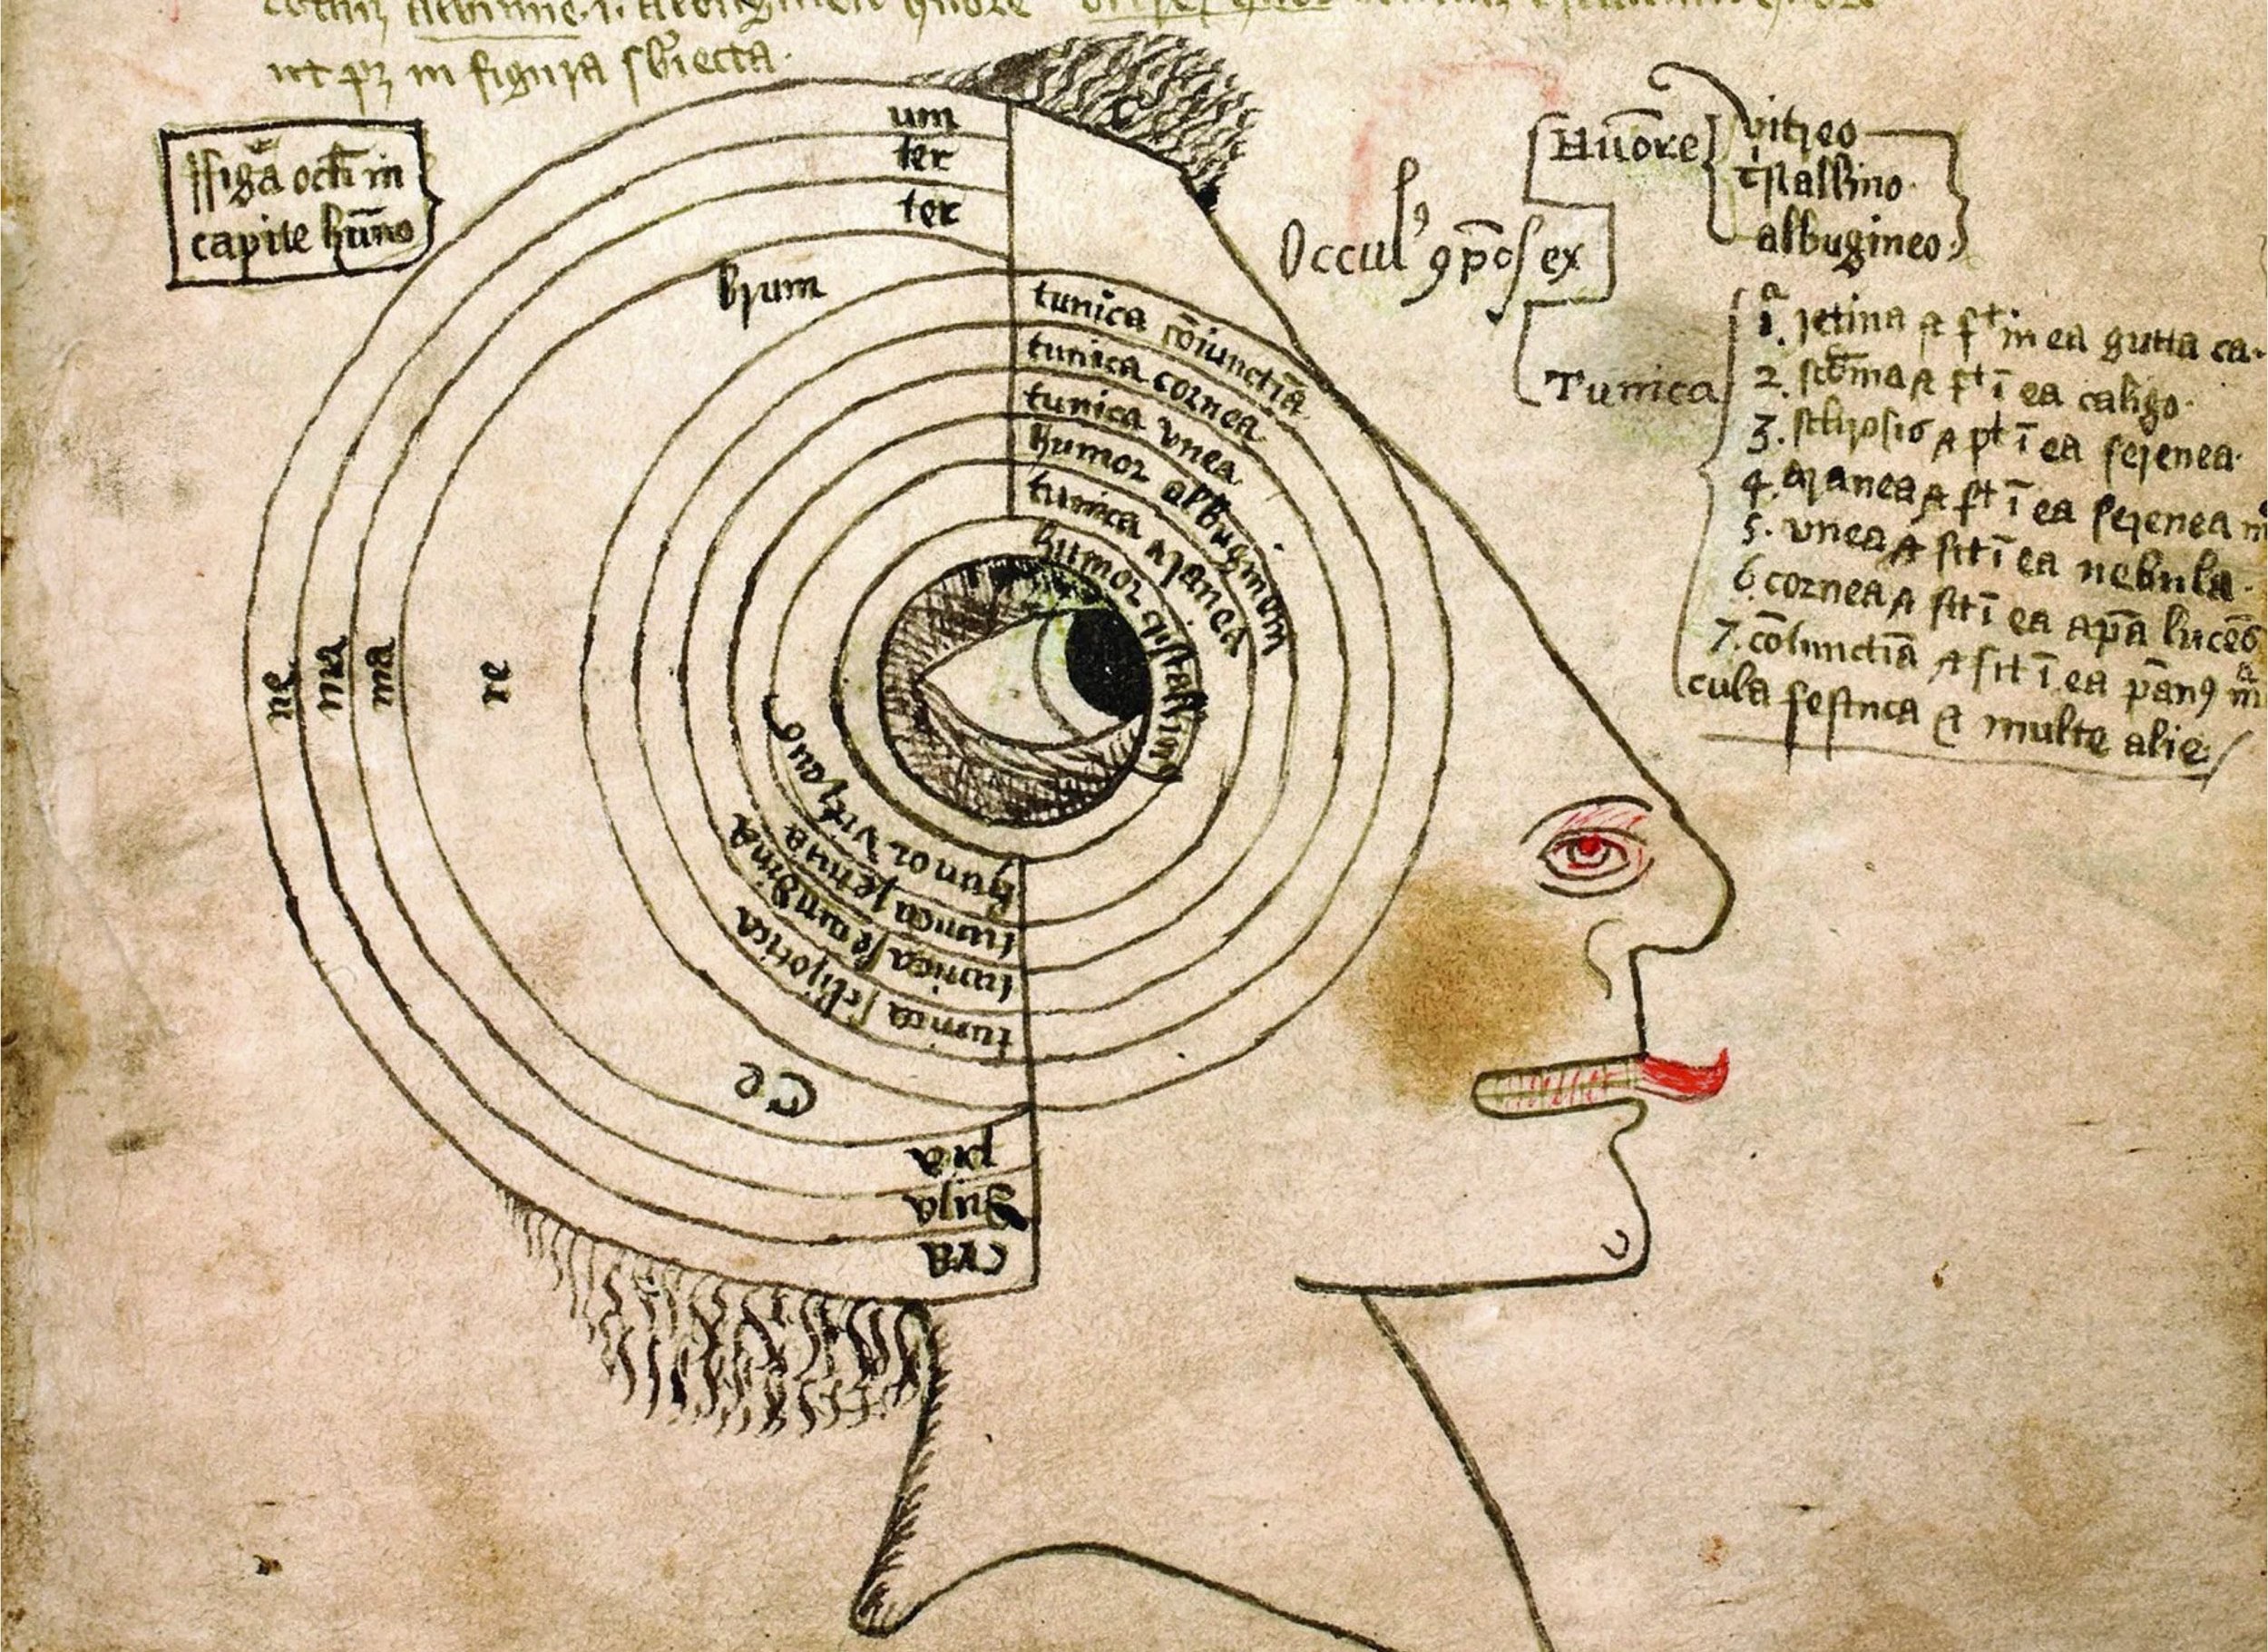 ut pȝ in figura sbiecta.
ffigā ocłi in
capite hūno
um
ter
ter
brum
ne
ma
ma
re
tunica cōiunctiā
tunica cornea
tunica vuea
humor albugineom
tunica aranea
humor cristallino
humor vitreom
tunica retina
tunica secundina
tunica sclirotica
Ce
pia
dura
cra
Occul' ꝯpōſ ex
Hūore
vitreo
cristallino.
albugineo.
Tunica
1. retina a fit in ea gutta ca.
2. scōma a fit ī ea caligo.
3. sclirosis a fit ī ea serenea.
4. aranea a fit ī ea serenea
5. vuea a fit ī ea nebula.
6. cornea a fit ī ea apā lucēs
7. cōiunctiā a fit ī ea pānꝯ
cula festuca a multe alie.